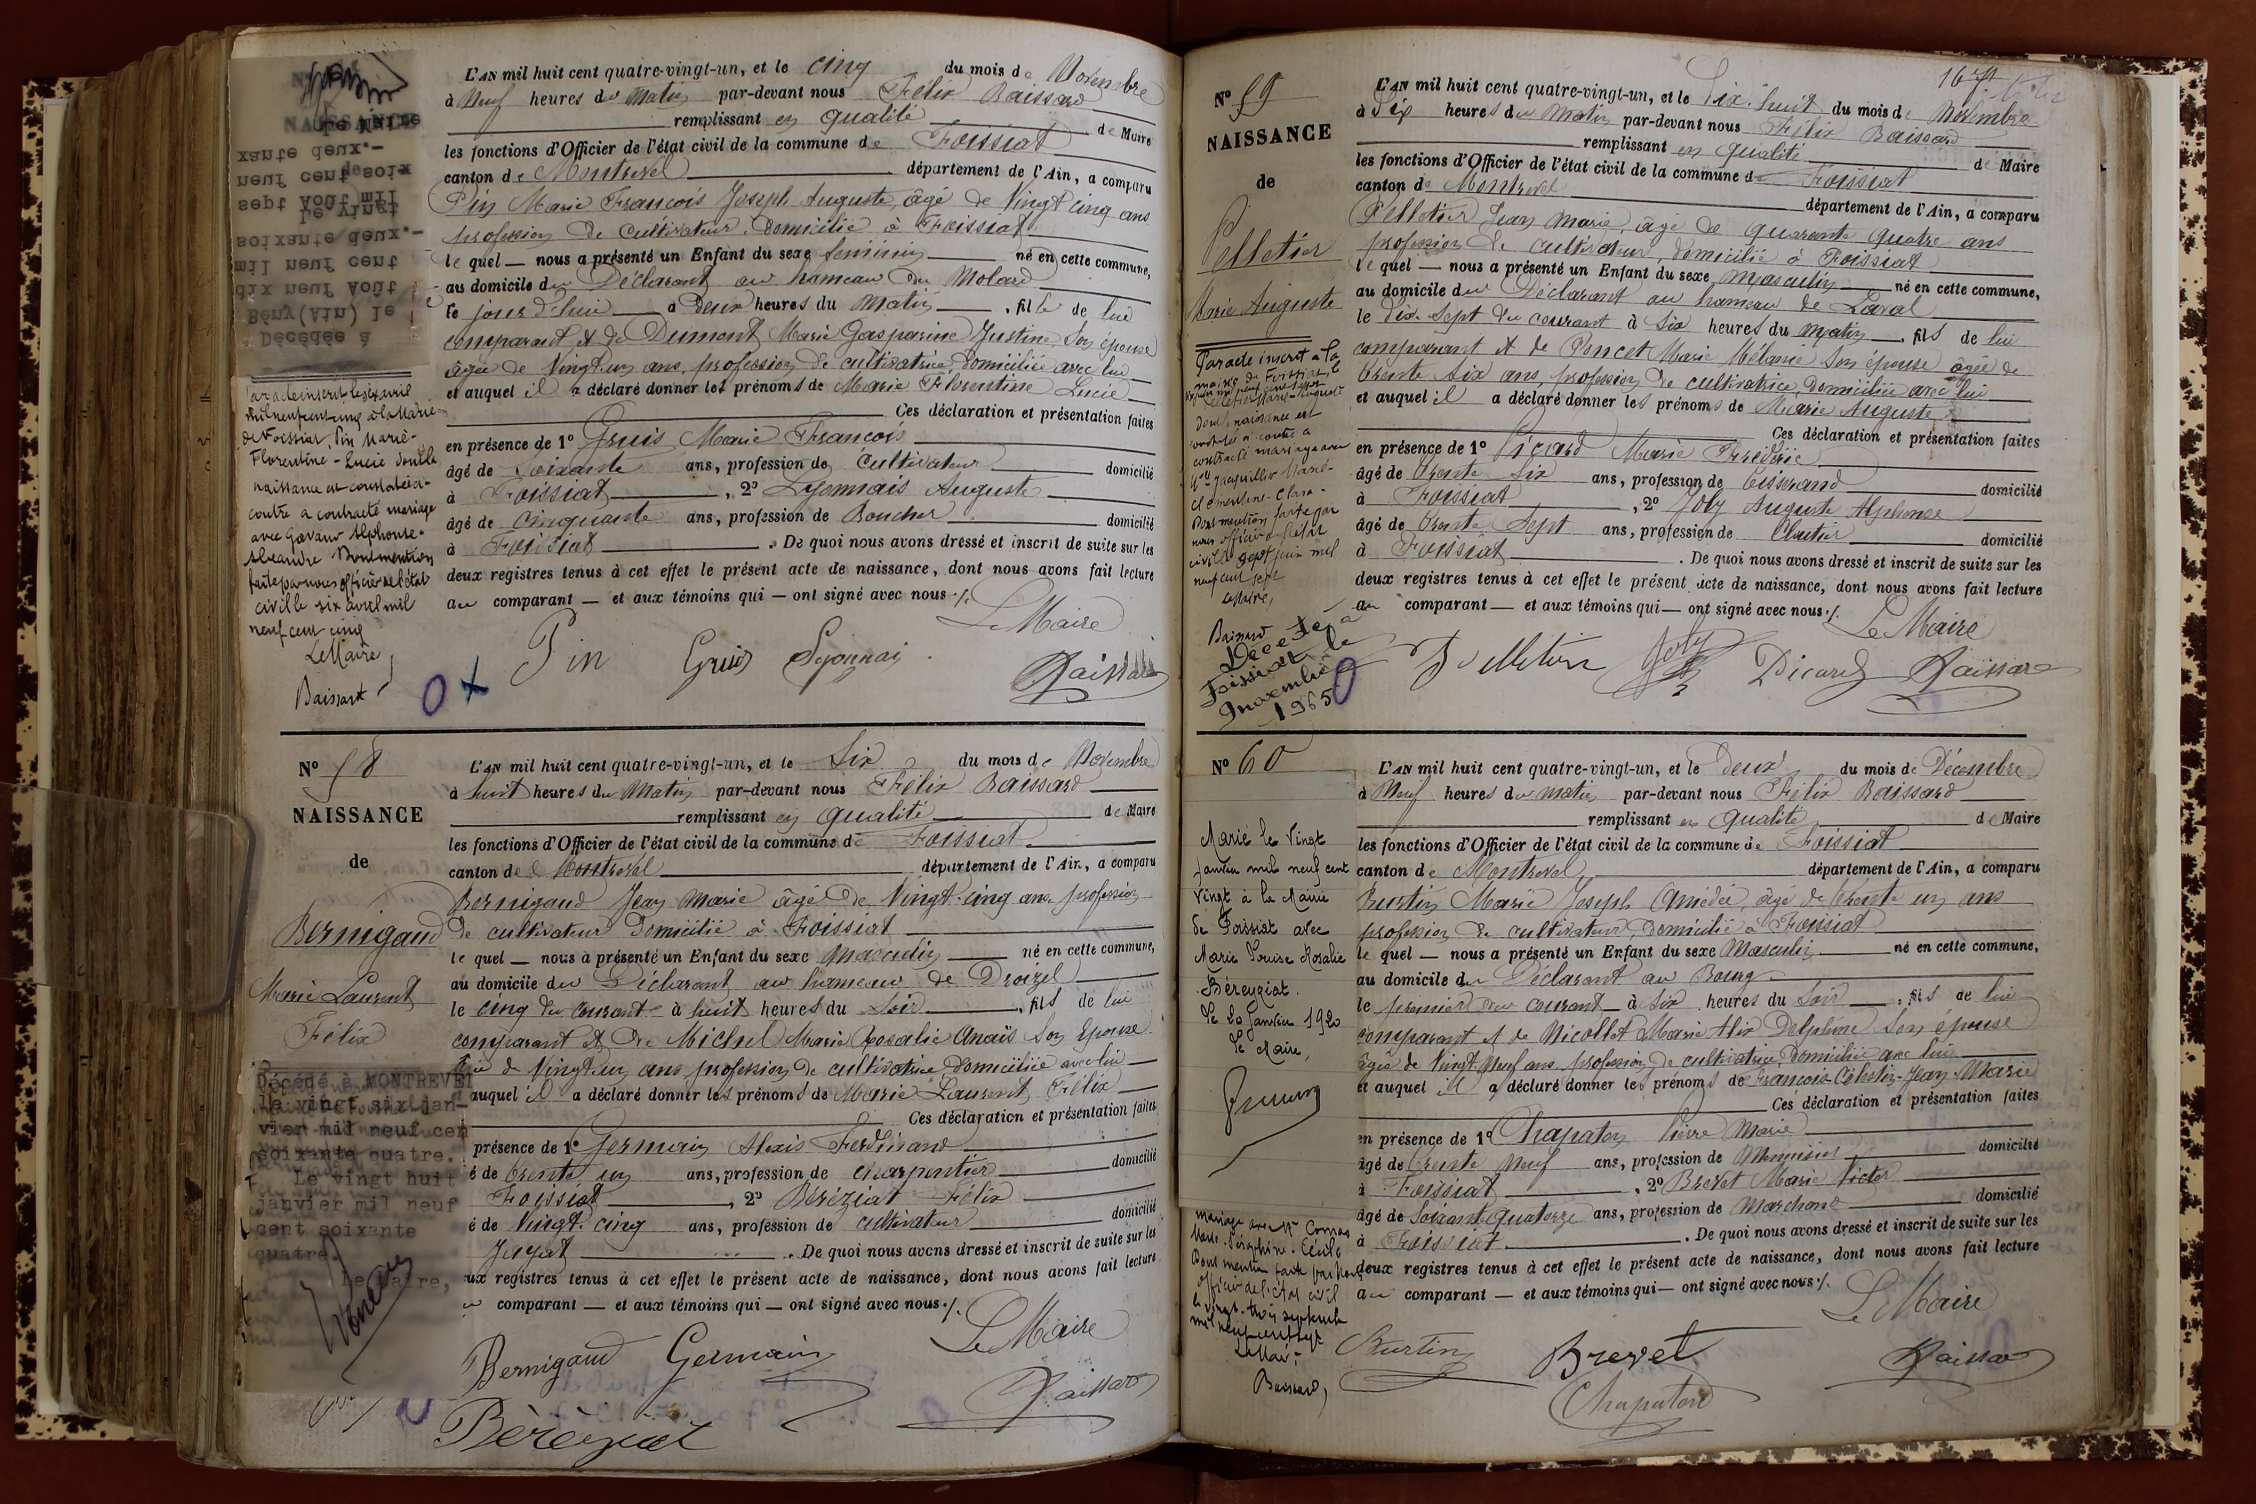 NAISSANCE
Le Maire
xante deux.-
neuf cent soix
sept Août mil
Le vingt
soixante deux.-
mil neuf cent
dix neuf Août
Bény(Ain) le
Décédée à
Par acte inscrit le six avril
mil neuf cent cinq à la Mairie
de Foissiat, Pin Marie-
Florentine-Lucie dont la
naissance est constatée ci-
contre a contracté mariage
avec Alphonse-
Alexandre Dont mention
faite par nous officier de l'état
civil le six avril mil
neuf cent cinq
Le Maire
Baissard
L'AN mil huit cent quatre-vingt-un, et le cinq du mois de Novembre
à Neuf heures du Matin par-devant nous Félix Baissard
remplissant en qualité de Maire
les fonctions d'Officier de l'état civil de la commune de Foissiat
canton de Montrevel département de l'Ain, a comparu
Pin Marie François Joseph Auguste, âgé de Vingt cinq ans
profession de cultivateur, domicilié à Foissiat
le quel — nous a présenté un Enfant du sexe féminin né en cette commune,
au domicile du Déclarant au hameau du Molard
le jour d'hui à Deux heures du Matin, fille de lui
comparant et de Dumont Marie Gasparine Justine, Son épouse
âgée de Vingt un ans, profession de cultivatrice, domiciliée avec lui
et auquel il a déclaré donner les prénoms de Marie Florentine Lucie
Ces déclaration et présentation faites
en présence de 1° Gruis Marie François
âgé de Soixante ans, profession de Cultivateur domicilié
à Foissiat, 2° Lyonnais Auguste
âgé de Cinquante ans, profession de Boucher domicilié
à Foissiat. De quoi nous avons dressé et inscrit de suite sur les
deux registres tenus à cet effet le présent acte de naissance, dont nous avons fait lecture
au comparant — et aux témoins qui — ont signé avec nous ./.
Le Maire
Pin Gruis Lyonnais
Baissard
N° 58
NAISSANCE
de
Bernigaud
Marie Laurent
Félix
Décédé à MONTREVEL
le vingt six jan-
vier mil neuf cen
soixante quatre.
Le vingt huit
janvier mil neuf
cent soixante
quatre
Le Maire,
L'AN mil huit cent quatre-vingt-un, et le Six du mois de Novembre
à huit heures du Matin par-devant nous Félix Baissard
remplissant en qualité de Maire
les fonctions d'Officier de l'état civil de la commune de Foissiat
canton de Montrevel département de l'Ain, a comparu
Bernigaud Jean Marie âgé de Vingt-cinq ans profession
de cultivateur domicilié à Foissiat
le quel — nous a présenté un Enfant du sexe Masculin né en cette commune,
au domicile du Déclarant au hameau de Droizel
le cinq du courant à huit heures du Soir, fils de lui
comparant et de Michel Marie Rosalie Anaïs Son Epouse
âgée de Vingt un ans, profession de cultivatrice domiciliée avec lui
auquel il a déclaré donner les prénoms de Marie Laurent Félix
Ces déclaration et présentation faites
présence de 1° Germain Alexis Ferdinand
é de trente un ans, profession de charpentier domicilié
Foissiat, 2° Béréziat Félix
é de vingt-cinq ans, profession de cultivateur domicilié
Jayat. De quoi nous avons dressé et inscrit de suite sur les
ux registres tenus à cet effet le présent acte de naissance, dont nous avons fait lecture
comparant — et aux témoins qui — ont signé avec nous ./.
Le Maire
Bernigaud Germain
Baissard
Béréziat
N° 59
NAISSANCE
de
Pelletier
Marie Auguste
Par acte inscrit à la
mairie de Foissiat, le
Pelletier Marie-Auguste
dont la naissance est
constatée ci-contre a
contracté mariage avec
Melle Jacquillier Marie-
Clémentine-Clara-
Dont mention faite par
nous officier de l'état
civil le sept juin mil
neuf cent sept
Le Maire,
Baissard
Décédé à
Foissiat le
9 novembre
1965
L'AN mil huit cent quatre-vingt-un, et le Dix-huit du mois de Novembre
à Six heures du Matin par-devant nous Félix Baissard
remplissant en qualité de Maire
les fonctions d'Officier de l'état civil de la commune de Foissiat
canton de Montrevel département de l'Ain, a comparu
Pelletier Jean Marie, âgé de quarante quatre ans
profession de cultivateur, domicilié à Foissiat
le quel — nous a présenté un Enfant du sexe Masculin né en cette commune,
au domicile du Déclarant au hameau de Laval
le Dix-sept du courant à Six heures du matin, fils de lui
comparant et de Poncet Marie Mélanie Son épouse âgée de
trente six ans, profession de cultivatrice, domiciliée avec lui
et auquel il a déclaré donner les prénoms de Marie Auguste
Ces déclaration et présentation faites
en présence de 1° Picard Marie Frédéric
âgé de trente six ans, profession de tisserand domicilié
à Foissiat, 2° Joly Auguste Alphonse
âgé de trente Sept ans, profession de Cloutier domicilié
à Foissiat. De quoi nous avons dressé et inscrit de suite sur les
deux registres tenus à cet effet le présent acte de naissance, dont nous avons fait lecture
au comparant — et aux témoins qui — ont signé avec nous ./.
Le Maire
Pelletier Joly Picard Baissard
N° 60
Marié le Vingt
janvier mil neuf cent
vingt à la Mairie
de Foissiat avec
Marie Louise Rosalie
Béreyziat.
Le 20 janvier 1920
Le Maire,
mariage avec Melle
Marie-Joséphine-Cécile
Dont mention faite par Nous
officier de l'état civil
le vingt-trois septembre
mil neuf cent sept
Le Maire
Baissard
L'AN mil huit cent quatre-vingt-un, et le Deux du mois de Décembre
à Neuf heures du matin par-devant nous Félix Baissard
remplissant en qualité de Maire
les fonctions d'Officier de l'état civil de la commune de Foissiat
canton de Montrevel département de l'Ain, a comparu
Burtin Marie Joseph Amédée, âgé de trente un ans
profession de cultivateur, domicilié à Foissiat
le quel — nous a présenté un Enfant du sexe Masculin né en cette commune,
au domicile du Déclarant au Bourg
le premier du courant à six heures du Soir, fils de lui
comparant et de Nicollet Marie Alix Delphine Son épouse
âgée de Vingt Neuf ans, profession de cultivatrice domiciliée avec lui
et auquel il a déclaré donner les prénoms de François-Célestin-Jean-Marie
Ces déclaration et présentation faites
en présence de 1° Chapaton Pierre Marie
âgé de trente Neuf ans, profession de Menuisier domicilié
à Foissiat, 2° Brevet Marie Victor
âgé de Soixante Quatorze ans, profession de Marchand domicilié
à Foissiat. De quoi nous avons dressé et inscrit de suite sur les
deux registres tenus à cet effet le présent acte de naissance, dont nous avons fait lecture
au comparant — et aux témoins qui — ont signé avec nous ./.
Le Maire
Burtin Brevet Baissard
Chapaton